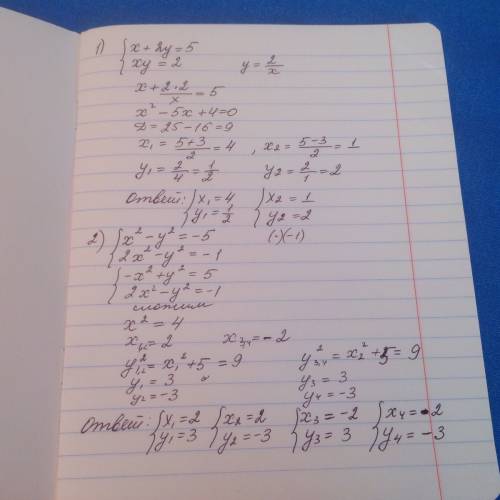 1) { x + 2y = 5
xy = 2 y = 2/x
x + 2·2/x = 5
x² - 5x + 4 = 0
D = 25 - 16 = 9
x₁ = (5+3)/2 = 4 , x₂ = (5-3)/2 = 1
y₁ = 2/4 = 1/2 y₂ = 2/1 = 2
Ответ: { x₁ = 4 { x₂ = 1
y₁ = 1/2 y₂ = 2
2) { x² - y² = -5 (·)(-1)
2x² - y² = -1
{ -x² + y² = 5
2x² - y² = -1
сложим
x² = 4
x₁,₂ = 2 x₃,₄ = -2
y²₁,₂ = x₁² + 5 = 9 y²₃,₄ = x₂² + 5 = 9
y₁ = 3 y₃ = 3
y₂ = -3 y₄ = -3
Ответ: { x₁ = 2 { x₂ = 2 { x₃ = -2 { x₄ = -2
y₁ = 3 y₂ = -3 y₃ = 3 y₄ = -3